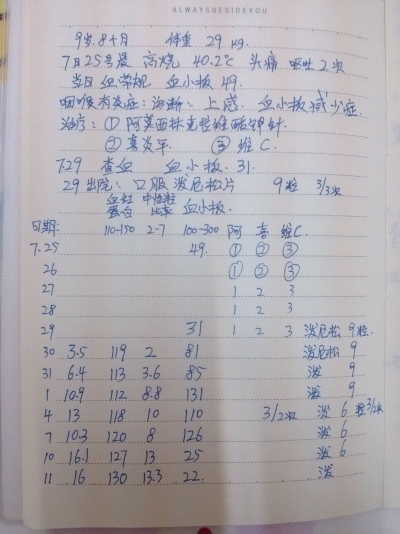 ALWAYSBESIDEYOU
9岁8个月 体重 29 kg.
7月25号晨 高烧 40.2℃ 头痛 呕吐2次
当日血常规 血小板 49.
咽喉有炎症:诊断:上感. 血小板减少症
治疗:① 阿莫西林克拉维酸钾针
② 喜炎平. ③ 维C.
7.29 查血 血小板. 31.
29出院: 口服泼尼松片 9粒 3/3次
血红 中性粒
蛋白 比率 血小板.
日期: 110-150 2-7 100-300 阿 喜 维C.
7.25 49. ① ② ③
26 ① ② ③
27 1 2 3
28 1 2 3
29 31 1 2 3 泼尼松 9粒.
30 3.5 119 2 81 泼尼松 9
31 6.4 113 3.6 85 泼 9
1 10.9 112 8.8 131 泼 9
4 13 118 10 110 3/2次 泼 6粒3/2次
7 10.3 120 8 126 泼 6
10 16.1 127 13 25 泼 6
11 16 130 13.3 22. 泼